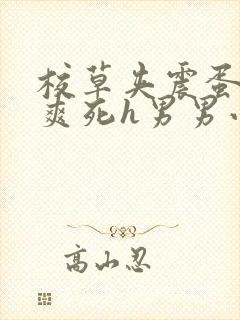 校草夹震蛋
爽死h男男小
高山忍